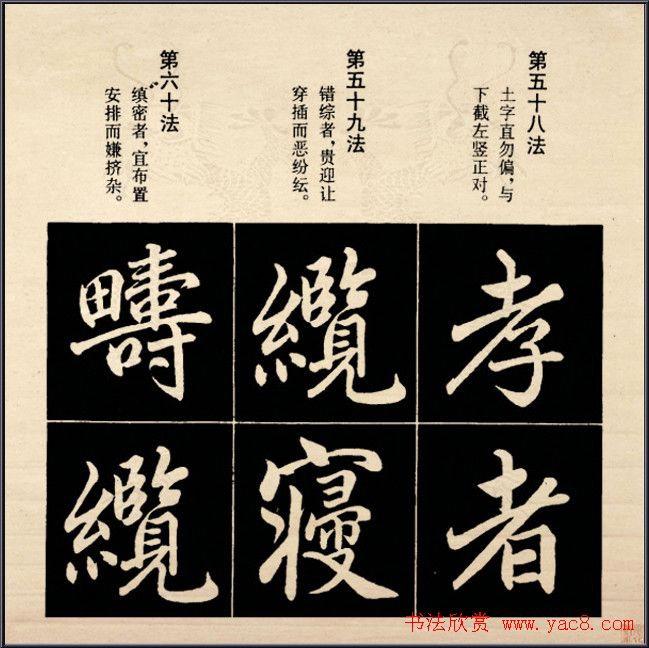 第五十八法
土字直勿偏，与
下截左竖正对。
第五十九法
错综者，贵迎让
穿插而恶纷纭。
第六十法
缜密者，宜布置
安排而嫌挤杂。
孝
者
纜
寢
疇
纜
书法欣赏 www.yac8.com